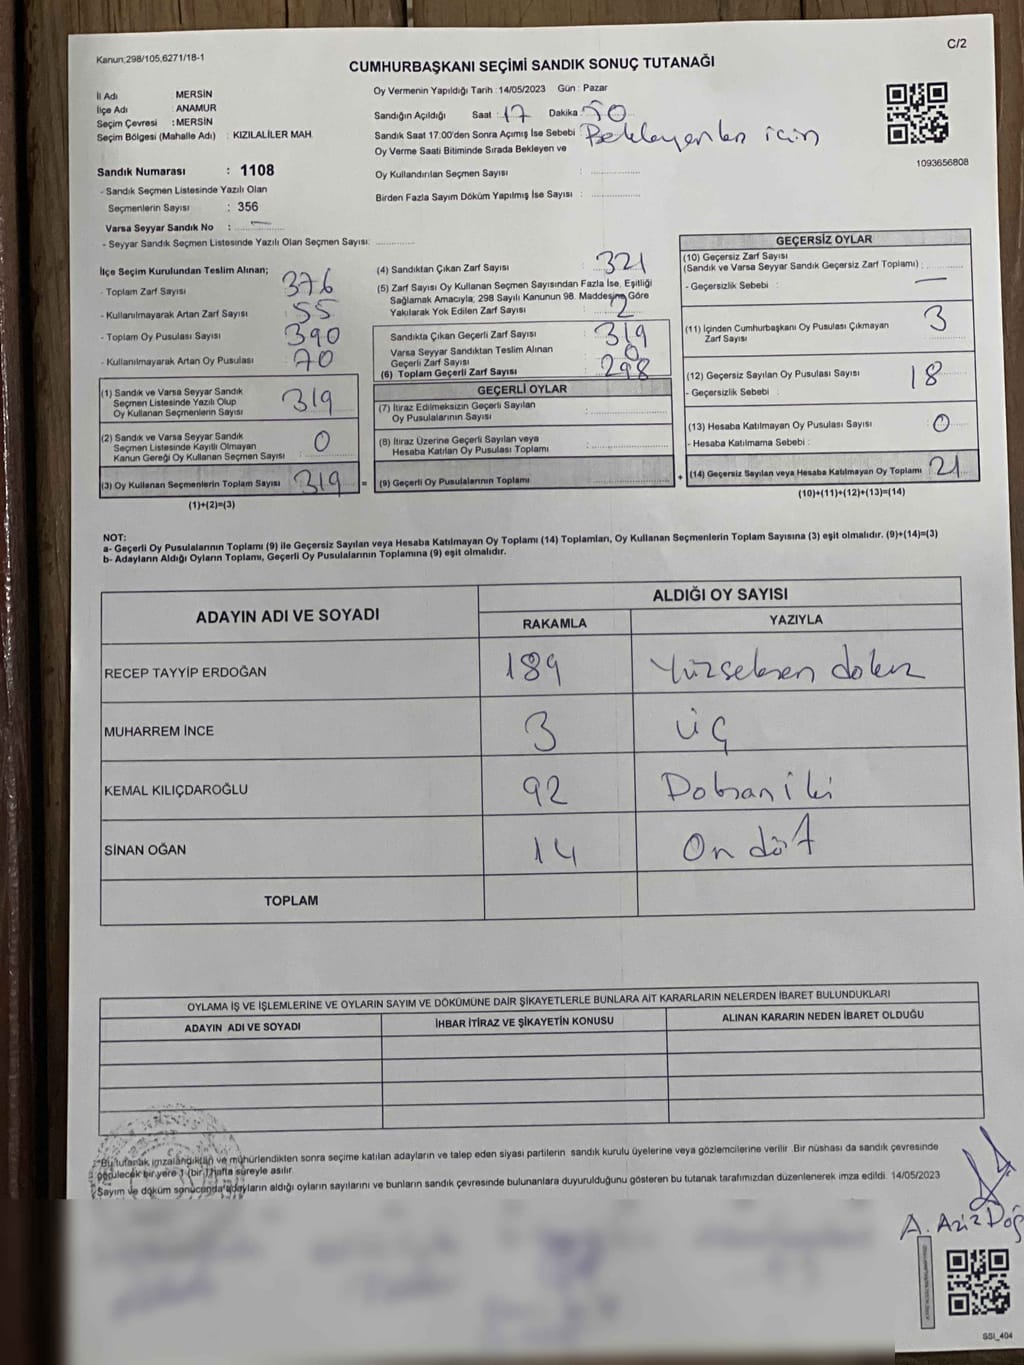 Kanun;298/105,6271/18-1
C/2
CUMHURBAŞKANI SEÇİMİ SANDIK SONUÇ TUTANAĞI
İl Adı MERSİN
İlçe Adı : ANAMUR
Seçim Çevresi : MERSİN
Seçim Bölgesi (Mahalle Adı) : KIZILALİLER MAH.
Oy Vermenin Yapıldığı Tarih : 14/05/2023 Gün : Pazar
Sandığın Açıldığı Saat : 17 Dakika : 50
Sandık Saat 17:00'den Sonra Açımış İse Sebebi : Bekleyenler için
Oy Verme Saati Bitiminde Sırada Bekleyen ve
Oy Kullandırılan Seçmen Sayısı :
Birden Fazla Sayım Döküm Yapılmış İse Sayısı :
1093656808
Sandık Numarası : 1108
- Sandık Seçmen Listesinde Yazılı Olan
Seçmenlerin Sayısı : 356
Varsa Seyyar Sandık No : —
- Seyyar Sandık Seçmen Listesinde Yazılı Olan Seçmen Sayısı:
İlçe Seçim Kurulundan Teslim Alınan;
- Toplam Zarf Sayısı 376
- Kullanılmayarak Artan Zarf Sayısı : 55
- Toplam Oy Pusulası Sayısı : 390
- Kullanılmayarak Artan Oy Pusulası : 70
(1) Sandık ve Varsa Seyyar Sandık
Seçmen Listesinde Yazılı Olup
Oy Kullanan Seçmenlerin Sayısı 319
(2) Sandık ve Varsa Seyyar Sandık
Seçmen Listesinde Kayıtlı Olmayan
Kanun Gereği Oy Kullanan Seçmen Sayısı : 0
(3) Oy Kullanan Seçmenlerin Toplam Sayısı 319
(1)+(2)=(3)
(4) Sandıktan Çıkan Zarf Sayısı : 321
(5) Zarf Sayısı Oy Kullanan Seçmen Sayısından Fazla İse, Eşitliği
Sağlamak Amacıyla; 298 Sayılı Kanunun 98. Maddesine Göre
Yakılarak Yok Edilen Zarf Sayısı : 2
Sandıkta Çıkan Geçerli Zarf Sayısı : 319
Varsa Seyyar Sandıktan Teslim Alınan
Geçerli Zarf Sayısı 0
(6) Toplam Geçerli Zarf Sayısı : 298
GEÇERLİ OYLAR
(7) İtiraz Edilmeksizin Geçerli Sayılan
Oy Pusulalarının Sayısı :
(8) İtiraz Üzerine Geçerli Sayılan veya
Hesaba Katılan Oy Pusulası Toplamı :
= (9) Geçerli Oy Pusulalarının Toplamı +
GEÇERSİZ OYLAR
(10) Geçersiz Zarf Sayısı
(Sandık ve Varsa Seyyar Sandık Geçersiz Zarf Toplamı) :
- Geçersizlik Sebebi : —
(11) İçinden Cumhurbaşkanı Oy Pusulası Çıkmayan
Zarf Sayısı : 3
(12) Geçersiz Sayılan Oy Pusulası Sayısı : 18
- Geçersizlik Sebebi :
(13) Hesaba Katılmayan Oy Pusulası Sayısı : 0
- Hesaba Katılmama Sebebi :
(14) Geçersiz Sayılan veya Hesaba Katılmayan Oy Toplamı : 21
(10)+(11)+(12)+(13)=(14)
NOT:
a- Geçerli Oy Pusulalarının Toplamı (9) ile Geçersiz Sayılan veya Hesaba Katılmayan Oy Toplamı (14) Toplamları, Oy Kullanan Seçmenlerin Toplam Sayısına (3) eşit olmalıdır. (9)+(14)=(3)
b- Adayların Aldığı Oyların Toplamı, Geçerli Oy Pusulalarının Toplamına (9) eşit olmalıdır.
ADAYIN ADI VE SOYADI
ALDIĞI OY SAYISI
RAKAMLA YAZIYLA
RECEP TAYYİP ERDOĞAN 189 Yüzseksen dokuz
MUHARREM İNCE 3 üç
KEMAL KILIÇDAROĞLU 92 Doksan iki
SİNAN OĞAN 14 On dört
TOPLAM
OYLAMA İŞ VE İŞLEMLERİNE VE OYLARIN SAYIM VE DÖKÜMÜNE DAİR ŞİKAYETLERLE BUNLARA AİT KARARLARIN NELERDEN İBARET BULUNDUKLARI
ADAYIN ADI VE SOYADI İHBAR İTİRAZ VE ŞİKAYETİN KONUSU ALINAN KARARIN NEDEN İBARET OLDUĞU
*Bu tutanak imzalandıktan ve mühürlendikten sonra seçime katılan adayların ve talep eden siyasi partilerin sandık kurulu üyelerine veya gözlemcilerine verilir. Bir nüshası da sandık çevresinde
görülecek bir yere 1 (bir) hafta süreyle asılır.
*Sayım ve döküm sonucunda adayların aldığı oyların sayılarını ve bunların sandık çevresinde bulunanlara duyurulduğunu gösteren bu tutanak tarafımızdan düzenlenerek imza edildi. 14/05/2023
A. Aziz Doğ
SSI_404